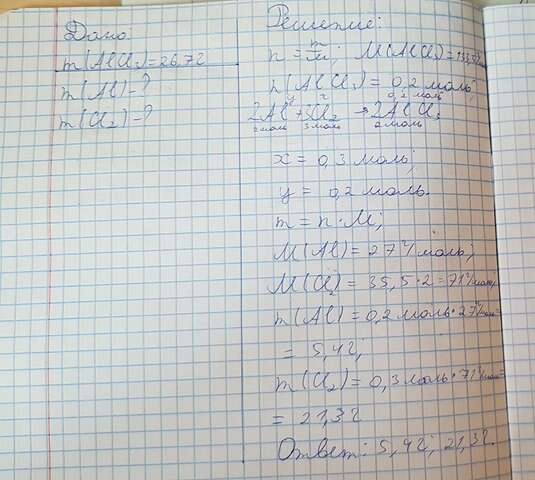 Дано:
m(AlCl₃)=26,7г
m(Al)-?
m(Cl₂)-?
Решение:
n = m/M; M(AlCl₃)=133,5г
n(AlCl₃) = 0,2 моль;
y x 0,2 моль
2Al + 3Cl₂ → 2AlCl₃
2 моль 3 моль 2 моль
x = 0,3 моль;
y = 0,2 моль.
m = n · M;
M(Al) = 27 г/моль;
M(Cl₂) = 35,5·2=71 г/моль;
m(Al) = 0,2 моль·27 г/моль=
= 5,4г;
m(Cl₂) = 0,3 моль·71 г/моль=
= 21,3г
Ответ: 5,4г; 21,3г.